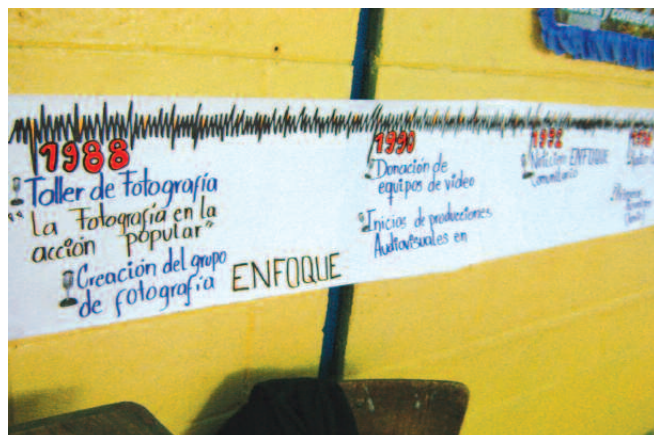 1988
Toller de Fotografía
"La Fotografía en la
acción popular"
Creación del grupo
de fotografía ENFOQUE
1990
Donación de
equipos de video
Inicios de producciones
Audiovisuales en
1992
Noticiero ENFOQUE
Comunitario